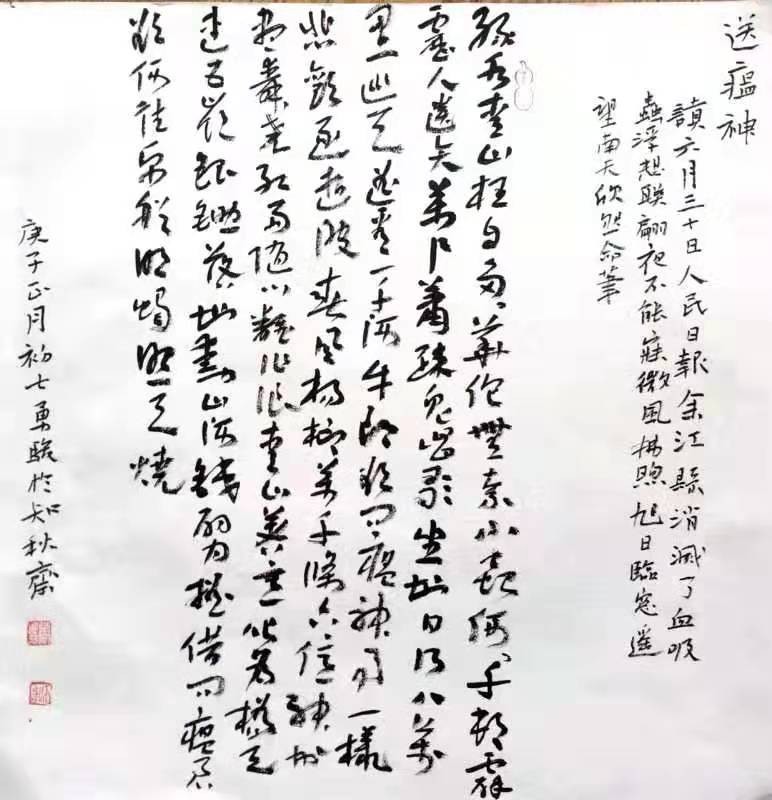 送瘟神
讀六月三十日人民日報余江縣消滅了血吸
蟲浮想聯翩夜不能寐微風拂煦旭日臨窓遥
望南天欣然命筆
綠水青山枉自多華佗無奈小蟲何千邨
人遺矢萬戶蕭疎鬼唱歌坐地日行八萬
里巡天遥看一千河牛郎欲問瘟神事一樣
悲歡逐逝波春風楊柳萬千條六億神州
盡舜堯紅雨隨心翻作浪青山着意化為橋天
連五嶺銀鋤落地動山河鐵臂摇借問瘟君
欲何往紙船明燭照天燒
庚子正月初七勇駿於知秋齋